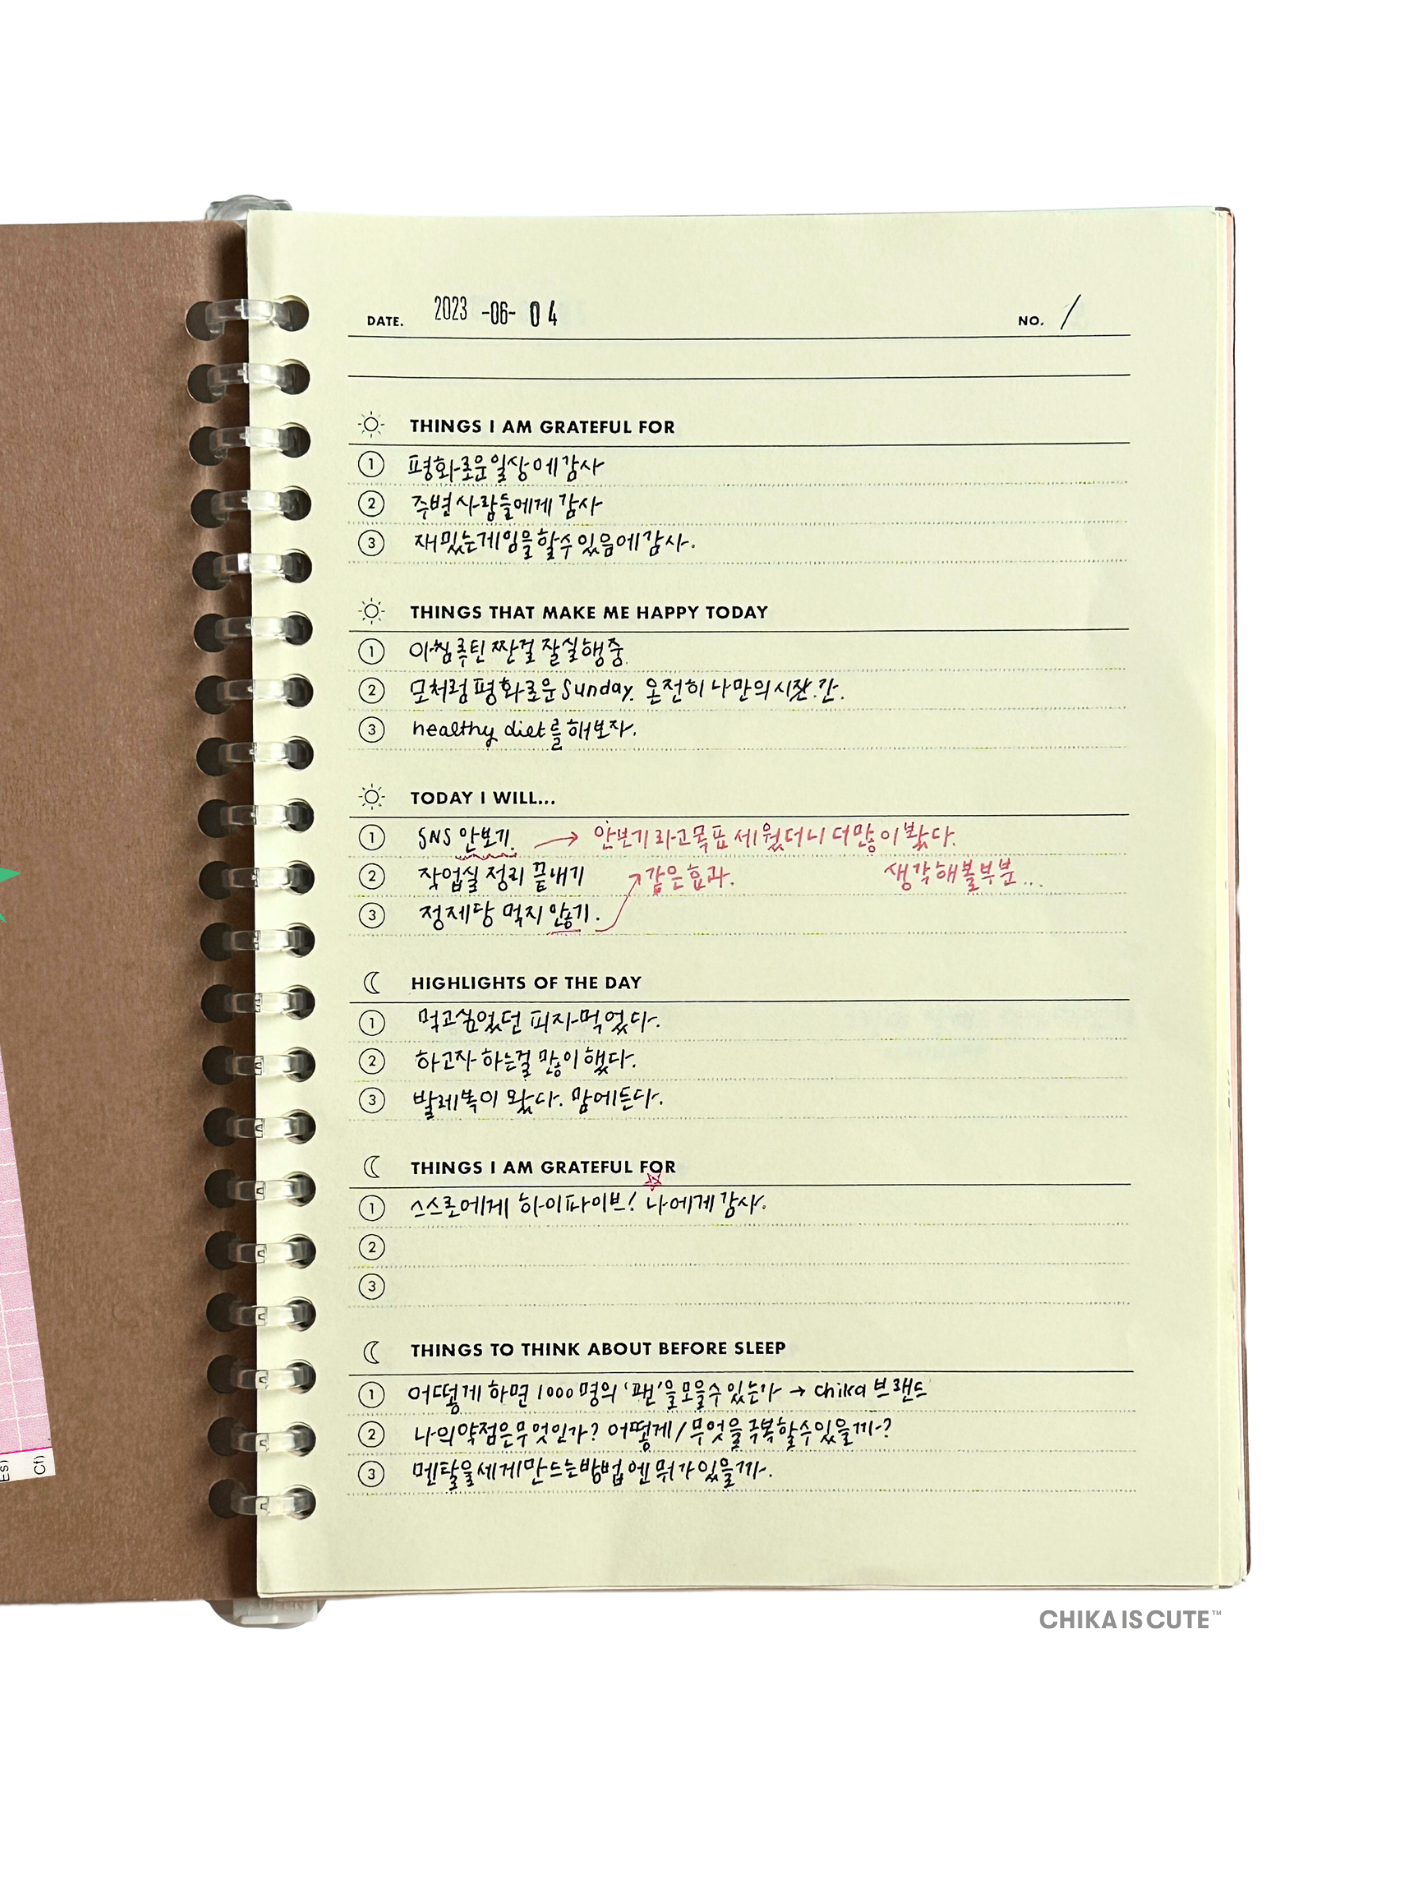 DATE. 2023 -06- 04 NO. 1
THINGS I AM GRATEFUL FOR
1 평화로운 일상에 감사
2 주변 사람들에게 감사
3 재밌는 게임을 할 수 있음에 감사.
THINGS THAT MAKE ME HAPPY TODAY
1 아침 루틴 짠걸 잘 실행중
2 모처럼 평화로운 Sunday. 온전히 나만의 시간.
3 healthy diet를 해보자.
TODAY I WILL...
1 SNS 안보기. → 안보기라고 목표 세웠더니 더 많이 봤다.
2 작업실 정리 끝내기 같은 효과. 생각해볼 부분...
3 정제당 먹지 않기.
HIGHLIGHTS OF THE DAY
1 먹고싶었던 피자 먹었다.
2 하고자 하는걸 많이 했다.
3 발레복이 왔다. 맘에든다.
THINGS I AM GRATEFUL FOR
1 스스로에게 하이파이브! 나에게 감사.
2
3
THINGS TO THINK ABOUT BEFORE SLEEP
1 어떻게 하면 1000명의 '팬'을 모을 수 있는가 → chika 브랜드
2 나의 약점은 무엇인가? 어떻게/무엇을 극복할 수 있을까?
3 멘탈을 세게 만드는 방법엔 뭐가 있을까.
Es)
Cf)
CHIKA IS CUTE™